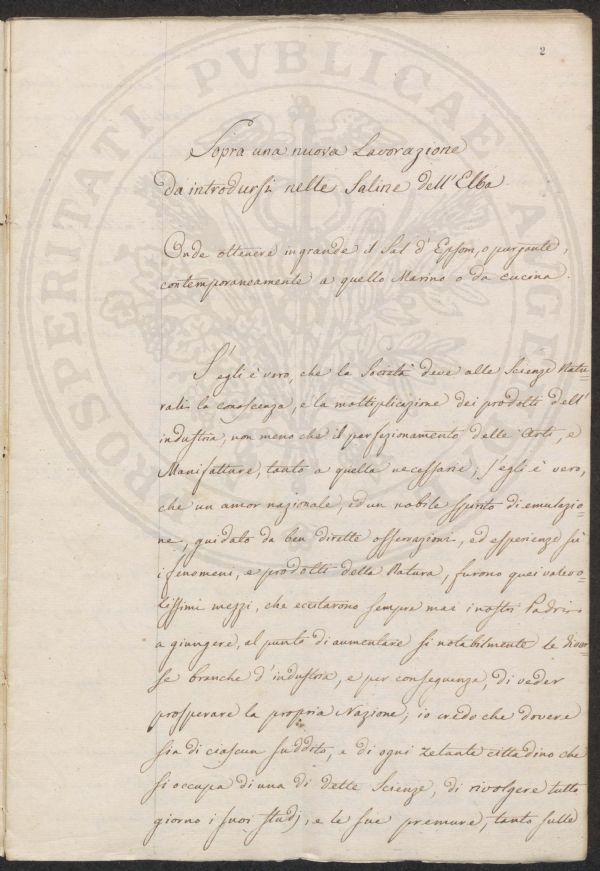 2
Sopra una nuova Lavorazione
da introdursi nelle Saline dell'Elba
Onde ottenere in grande il Sal d'Epsom, o purgante,
contemporaneamente a quello Marino o da cucina.
S'egli è vero, che la Società deve alle Scienze Natu-
rali la conoscenza, e la moltiplicazione dei prodotti dell'
industria, non meno che il perfezionamento delle Arti, e
Manifatture, tanto a quella necessarie; s'egli è vero,
che un amor nazionale, ed un nobile spirito di emulazio-
ne, guidato da ben dirette osservazioni, ed esperienze su
i fenomeni, e prodotti della Natura, furono quei valevo-
lissimi mezzi, che eccitarono sempre mai i nostri Padri
a giungere, al punto di aumentare si notabilmente le diver-
se branche d'industria, e per conseguenza, di veder
prosperare la propria Nazione, io credo che dovere
sia di ciascun suddito, e di ogni zelante cittadino che
si occupa di una di dette Scienze, di rivolgere tutto
giorno i suoi studj, e le sue premure, tanto sulle
PROSPERITATI PVBLICAE AVGENDAE